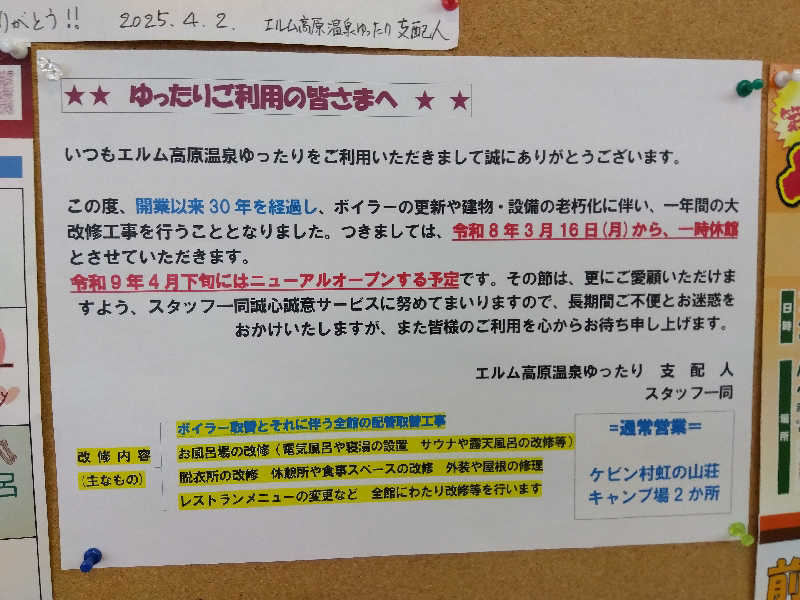 りがとう!! 2025.4.2. エルム高原温泉ゆったり支配人
★★ ゆったりご利用の皆さまへ ★ ★
いつもエルム高原温泉ゆったりをご利用いただきまして誠にありがとうございます。
この度、開業以来30年を経過し、ボイラーの更新や建物・設備の老朽化に伴い、一年間の大
改修工事を行うこととなりました。つきましては、令和8年3月16日(月)から、一時休館
とさせていただきます。
令和9年4月下旬にはニューアルオープンする予定です。その節は、更にご愛顧いただけま
すよう、スタッフ一同誠心誠意サービスに努めてまいりますので、長期間ご不便とお迷惑を
おかけいたしますが、また皆様のご利用を心からお待ち申し上げます。
エルム高原温泉ゆったり 支 配 人
スタッフ一同
改 修 内 容
(主なもの)
ボイラー取替とそれに伴う全館の配管取替工事
お風呂場の改修(電気風呂や寝湯の設置 サウナや露天風呂の改修等)
脱衣所の改修 休憩所や食事スペースの改修 外装や屋根の修理
レストランメニューの変更など 全館にわたり改修等を行います
=通常営業=
ケビン村虹の山荘
キャンプ場2か所
日時
場所